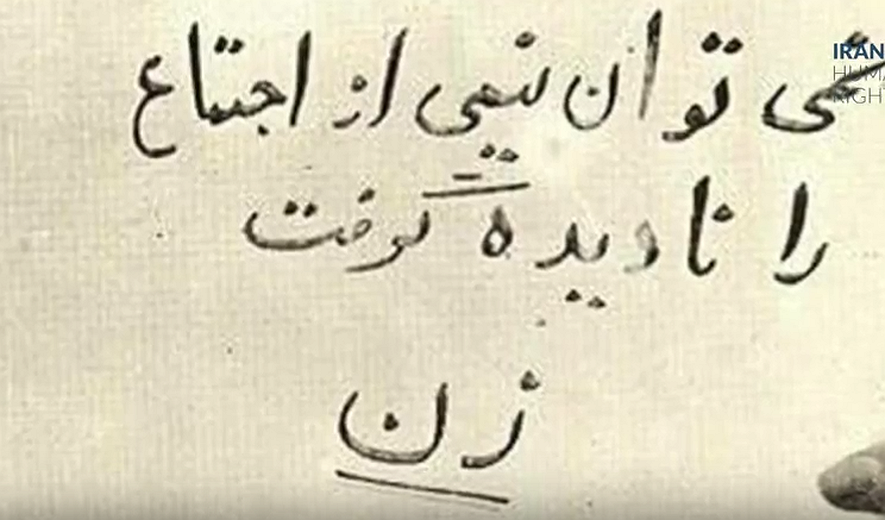 نمی توان نیمی از اجتماع
را نادیده گرفت
زن
IRAN
HUMA
RIGH